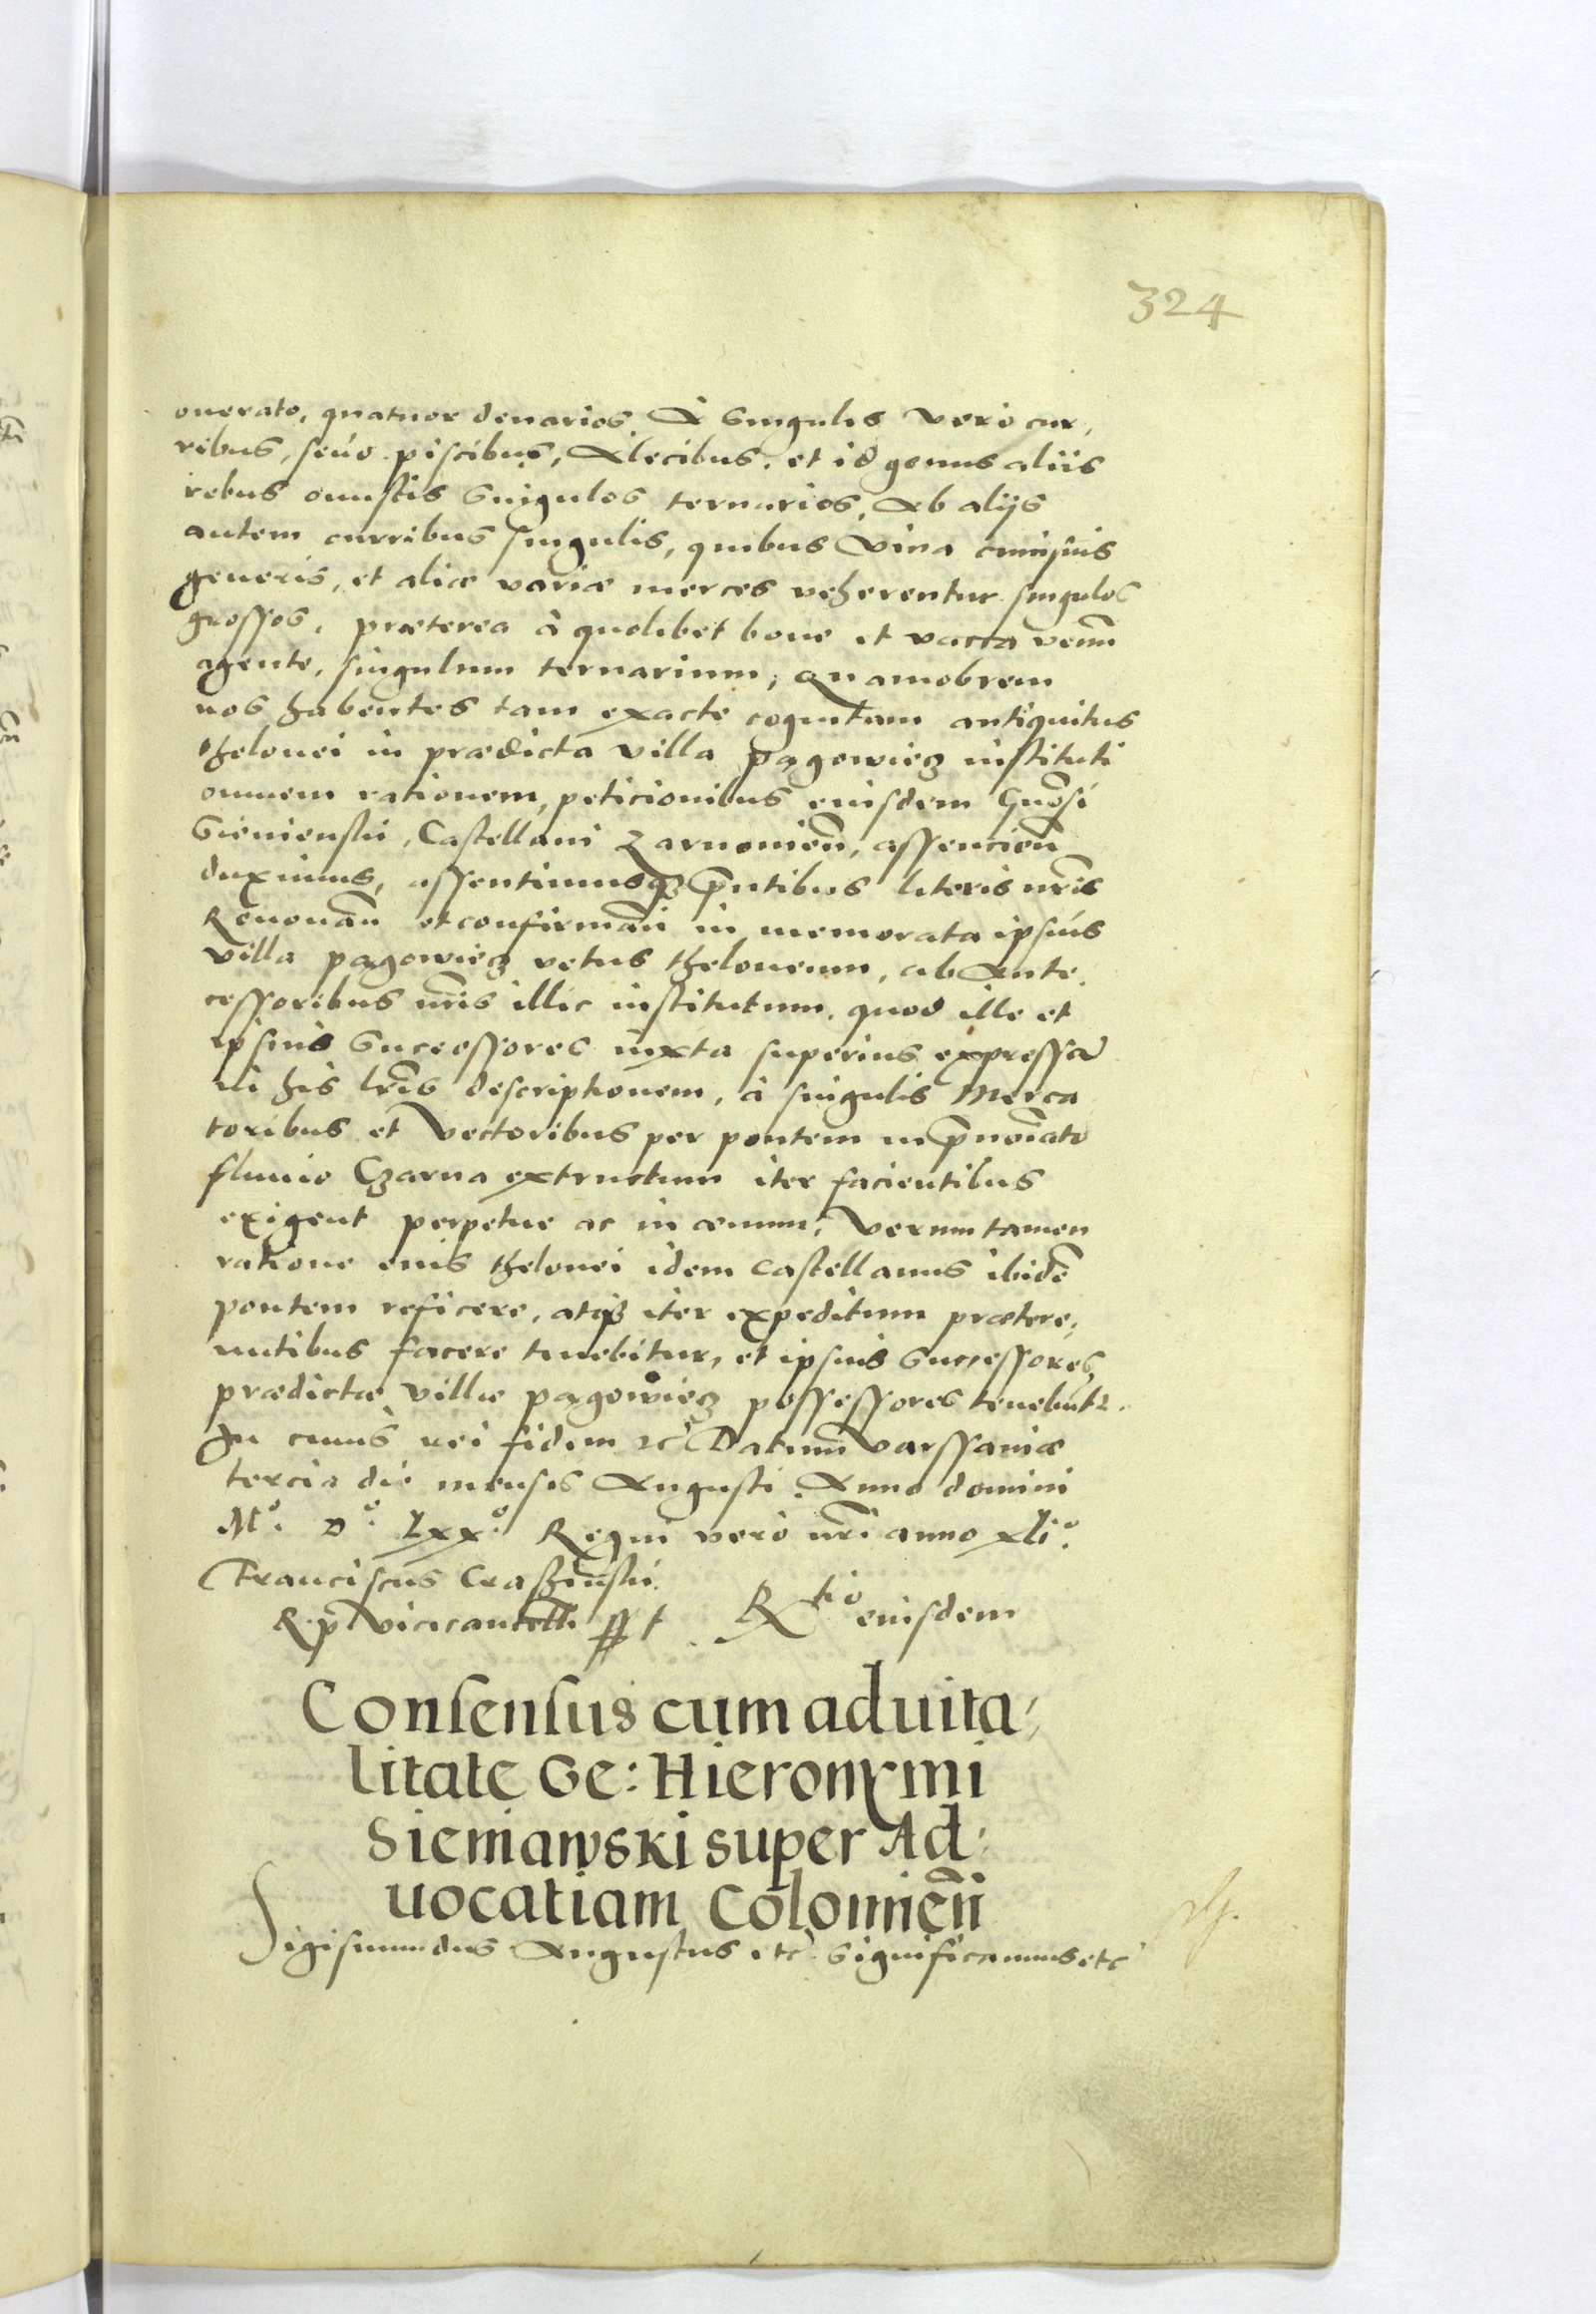 324
onerato, quatuor denarios. A Singulis vero cur,
ribus, seuo piscibus, Alecibus, et id genus aliis
rebus onustis Singulos ternarios, Ab alijs
autem curribus singulis, quibus vina cuiusuis
generis, et aliæ variæ merces veherentur singulos
grossos, præterea à quolibet boue et vacca venum̄
agente, singulum ternarium, Quamobrem
nos habentes tam exacte cognitam antiquitus
thelonei in prædicta villa pągowiecz instituti
omnem rationem, peticionibus eiusdem Gn̄osi
Sieniensky, Castellani Zarnouien̄, assencien̄
duximus, assentimusqȝ p̄ntibus literis nr̄is
Renouan̄ et confirman̄ in memorata ipsius
villa pągowiecz vetus theloneum, ab Ante,
cessoribus nr̄is illic institutum, quod ille et
ipsius Successores iuxta superius expressā
in his lr̄is descriptionem, à singulis Merca
toribus et vectoribus per pontem in p̄noīato
fluuio Czarna extructum iter facientibus
exigent perpetue ac in æuum, verum tamen
ratione eius thelonei idem castellanus ibidē
pontem reficere, atqȝ iter expeditum prætere,
untibus facere tenebitur, et ipsius Successores,
prædictæ villæ pągowiecz possessores tenebūtr.
In cuius rei fidem etc̄ Datum varssauiæ
tercia die mensis Augusti Anno domini
Mᵒ. Dᵒ. Lxxᵒ. Regni vero nr̄i anno xliᵒ.
Franciscus Craszinsky
R. p. vicecancell. sst Rᵗⁱᵒ eiusdem
Consensus cum aduita,
litate Ge: Hieronymi
Sieniawski super Ad,
uocatiam Colomien̄
Sigismundus Augustus etc̄ Significamus etc̄